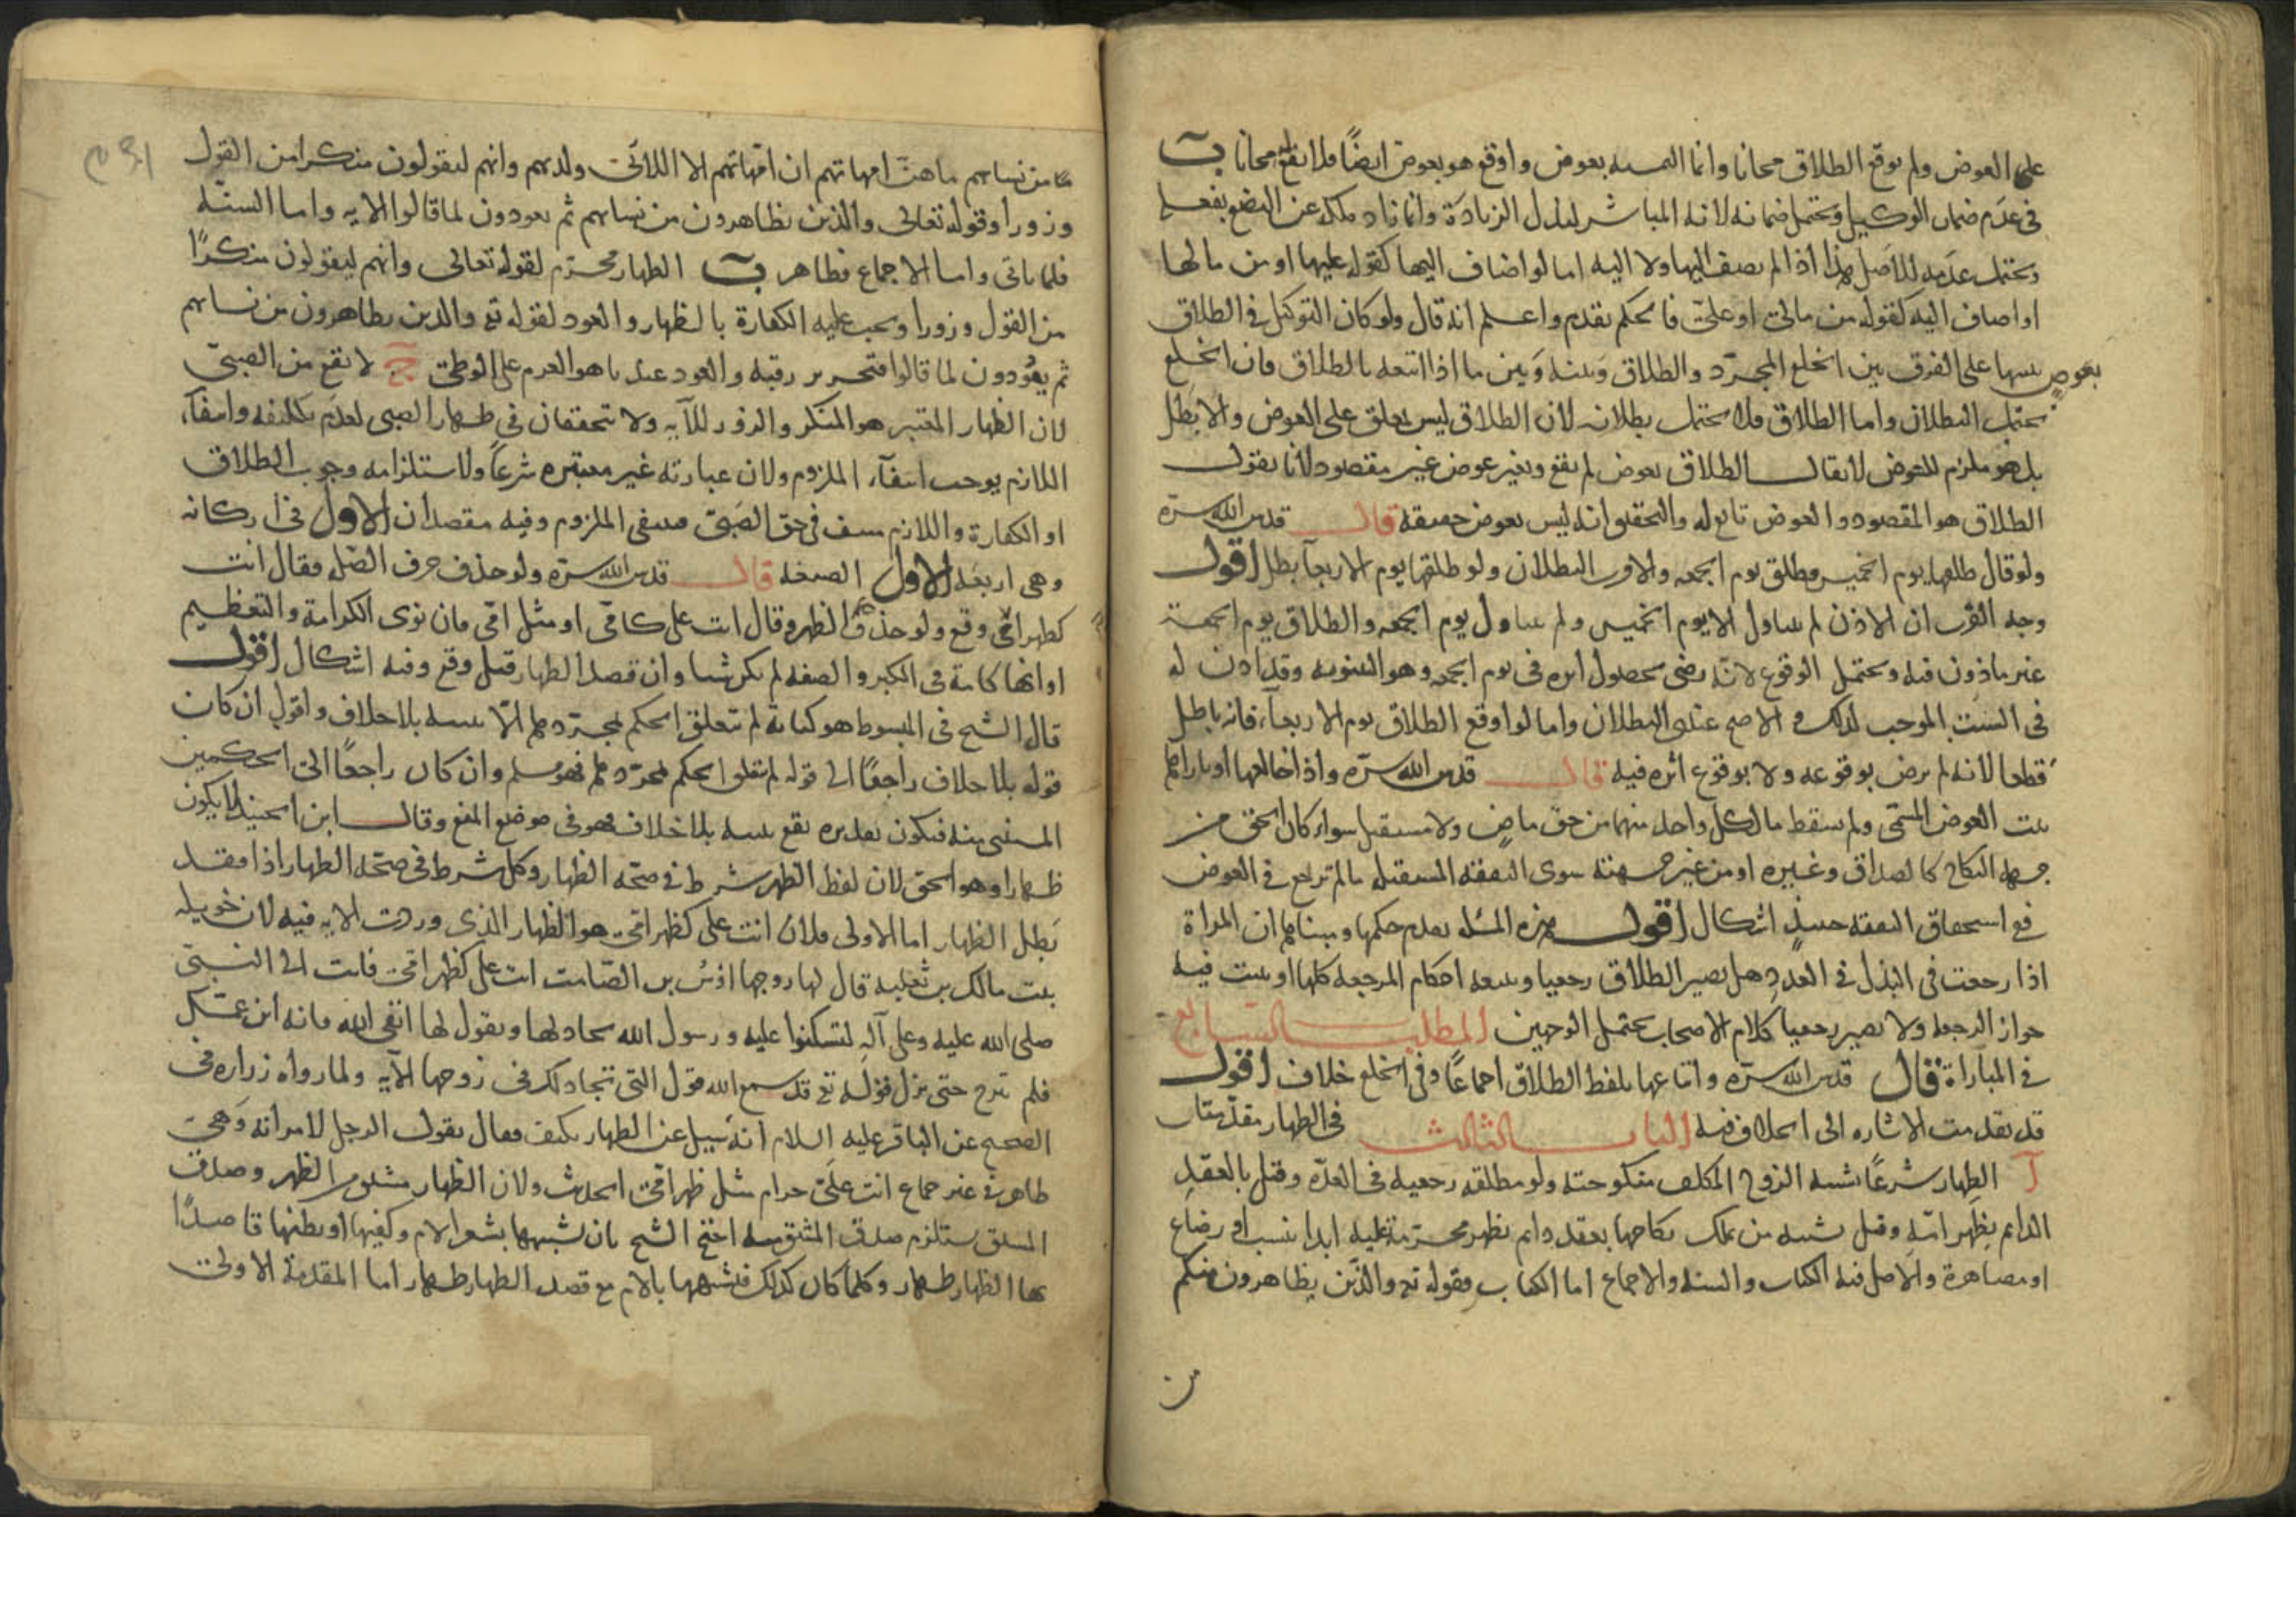 على العوض ولم يوقع الطلاق مجانا وانما التمسه بعوض واوقع هو بعوض ايضًا فلا يقع مجانا ب
فى عدم ضمان الوكيل ويحتمل ضمانه لانه المباشر لبذل الزيادة وانما زاد ملكه عن البضع بفعله
ويحتمل عدمه للاصل هذا اذا لم يضف اليها ولا اليه اما لو اضاف اليها كقوله عليها او من مالها
او اضاف اليه كقوله من مالى او علىّ فالحكم تقدم واعلم انه قال ولو كان التوكيل فى الطلاق
بعوض
تنبيها على الفرق بين الخلع المجرّد والطلاق وبينه وبين ما اذا اتبعه بالطلاق فان الخلع
يحتمل البطلان واما الطلاق فلا يحتمل بطلانه لان الطلاق ليس بمعلق على العوض والا بطل
بل هو ملزم للعوض لا يقال الطلاق بعوض لم يقع وبغير عوض غير مقصود لانا نقول
الطلاق هو المقصود والعوض تابع له والتحقيق انه ليس بعوض حقيقة قال قدس الله سرّه
ولو قال طلقها يوم الخميس فطلق يوم الجمعه فالاقرب البطلان ولو طلقها يوم الاربعآ بطل اقول
وجه القرب ان الاذن لم يتناول الا يوم الخميس ولم يتناول يوم الجمعه والطلاق يوم الجمعة
غير ماذون فيه ويحتمل الوقوع لانّه رضى بحصول اثره فى يوم الجمعه وهو البينونه وقد اذن له
فى السبب الموجب لذلك و الاصح عندى البطلان واما لو اوقع الطلاق يوم الاربعآء فانه باطل
قطعا لانه لم يرض بوقوعه ولا بوقوع اثره فيه قال قدس الله سرّه واذا خالعها او باراها
ثبت العوض المسمّى ولم يسقط ما لكل واحد منهما من حق ماضٍ ولا مستقبل سواء كان الحق من
جهة النكاح كالصداق وغيره او من غير جهته سوى النفقه المستقبله ما لم تراجع فى العوض
فع استحقاق النفقه حينئذٍ اشكال اقول هذه المسئله تقدم حكمها وبينا هل ان المراة
اذا رجعت فى البذل فى العدد هل يصير الطلاق رجعيا ويتبعه احكام الرجعه كلها او يثبت فيه
جواز الرجعه ولا يصير رجعيا كلام الاصحاب يحتمل الوجهين المطلب السابع
فى المباراة فقال قدس الله سرّه واتباعها بلفظ الطلاق اجماعًا وفى الخلع خلاف اقول
قد تقدمت الاشاره الى الخلاف فيه الباب الثالث فى الظهار مقدّمتان
آ الظهار شرعًا تشبيه الزوج المكلف منكوحته ولو مطلقه رجعيه فى العدّه وقيل بالعقد
الدايم بظهر امّه وقيل تشبيه من يملك نكاحها بعقد دايم بظهر محرّمة عليه ابدا بنسب او رضاع
او مصاهرة والاصل فيه الكتاب والسنه والاجماع اما الكتاب فقوله تع والذين يظاهرون منكم
من
من نسايهم ما هنّ امهاتهم ان امّهاتهم الا اللائى ولدنهم وانهم ليقولون منكرا من القول
وزورا وقوله تعالى والذين يظاهرون من نسايهم ثم يعودون لما قالوا الايه واما السنّه
فلما ياتى واما الاجماع فظاهر ب الظهار محرّم لقوله تعالى وانهم ليقولون منكرًا
من القول وزورا ويجب عليه الكفارة بالظهار والعود لقوله تع والذين يظاهرون من نسايهم
ثم يعُودون لما قالوا فتحرير رقبه والعود عندنا هو العزم على الوطى ج لا يقع من الصبىّ
لان الظهار المعتبر هو المنكر والزور للآيه ولا يتحققان فى ظهار الصبى لعدم تكليفه وانتفآء
اللازم يوجب انتفآء الملزوم ولان عبارته غير معتبره شرعًا ولاستلزامه وجوب الطلاق
او الكفارة واللازم منتف فى حق الصَبىّ فينتفى الملزوم وفيه مقصدان الاول فى اركانه
وهى اربعَه الاول الصيغه قال قدس الله سرّه ولو حذف حرف الصّله فقال انت
كظهر امّى وقع ولو حذف الظهر وقال انت على كامّى او مثل امّى فان نوى الكرامة والتعظيم
او انها كامّه فى الكبر والصفه لم يكن شيا وان قصد الظهار قيل وقع وفيه اشكال اقول
قال الشيخ فى المبسوط هو كناية لم تتعلق الحكم بمجرّده الّا بنيه بلا خلاف واقول ان كان
قوله بلا خلاف راجعًا الى قوله لم يتعلق الحكم بمجرّده فهو مسلم وان كان راجعًا الى الحكمين
المستثنى منه فيكون تقديره يقع بنيه بلا خلاف فهو فى موضع المنع وقال ابن الجنيد لا يكون
ظهارا وهو الحق لان لفظ الظهر شرط فى صحّه الظهار وكل شرط فى صحّه الظهار اذا فقد
بَطل الظهار اما الاولى فلان انت على كظهر امّى هو الظهار الذى وردت الايه فيه لان خويله
بنت مالك بن ثعلبه قال لها زوجها اوْس بن الصّامت انت على كظهر امّى فاتت الى النبىّ
صلى الله عليه وعلى آله لتشكوا عليه ورسول الله يجادلها ويقول لها اتقى الله فانه ابن عمّك
فلم تبرح حتى نزل قوله تع قد سمع الله قول التى تجادلك فى زوجها الآيه ولما رواه زراره فى
الصحيح عن الباقر عليه السلام انّه سُيل عن الظهار كيف فقال يقول الرجل لامراته وَهى
طاهر فى غير جماع انت علىّ حرام مثل ظهر امّى الحديث ولان الظهار مشتق من الظهر وصدق
المشتق يستلزم صدق المشتق منه احتج الشيخ بان تشبيهها بشعر الام وكفّيها او بطنها قاصدًا
بها الظهار ظهار وكلما كان كذلك فتشبيهها بالام مع قصد الظهار ظهار اما المقدمة الاولى